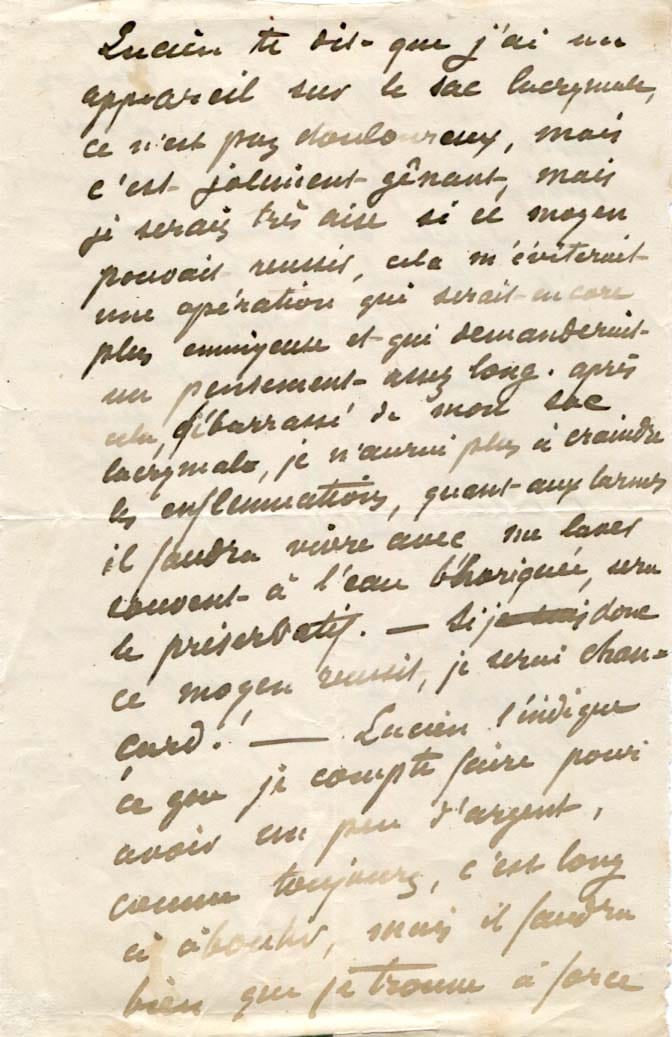 Lucien te dit que j'ai un
appareil sur le sac lacrymale,
ce n'est pas douloureux, mais
c'est joliment gênant, mais
je serais très aise si ce moyen
pouvait reussir, cela m'éviterait
une opération qui serait encore
plus ennuyeuse et qui demanderait
un pensement assez long. après
cela, débarrassé de mon sac
lacrymale, je n'aurai plus à craindre
les enflammations, quant aux larmes
il faudra vivre avec, me laver
souvent à l'eau bhoriquée, sera
le préservatif. — Si je donc
ce moyen reussit, je serai chan=
card! — Lucien t'indique
ce que je compte faire pour
avoir un peu d'argent,
comme toujours, c'est long
à àboutir, mais il faudra
bien que je trouve à force